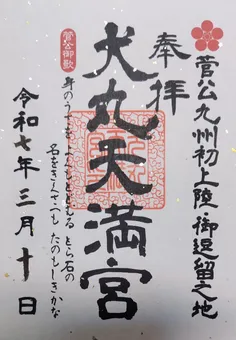 菅公九州初上陸・御逗留之地
奉拝
犬丸天満宮
菅公御歌
身のうさをふみもとどむるとら石の
名をきくさつも たのもしきかな
令和七年三月十日